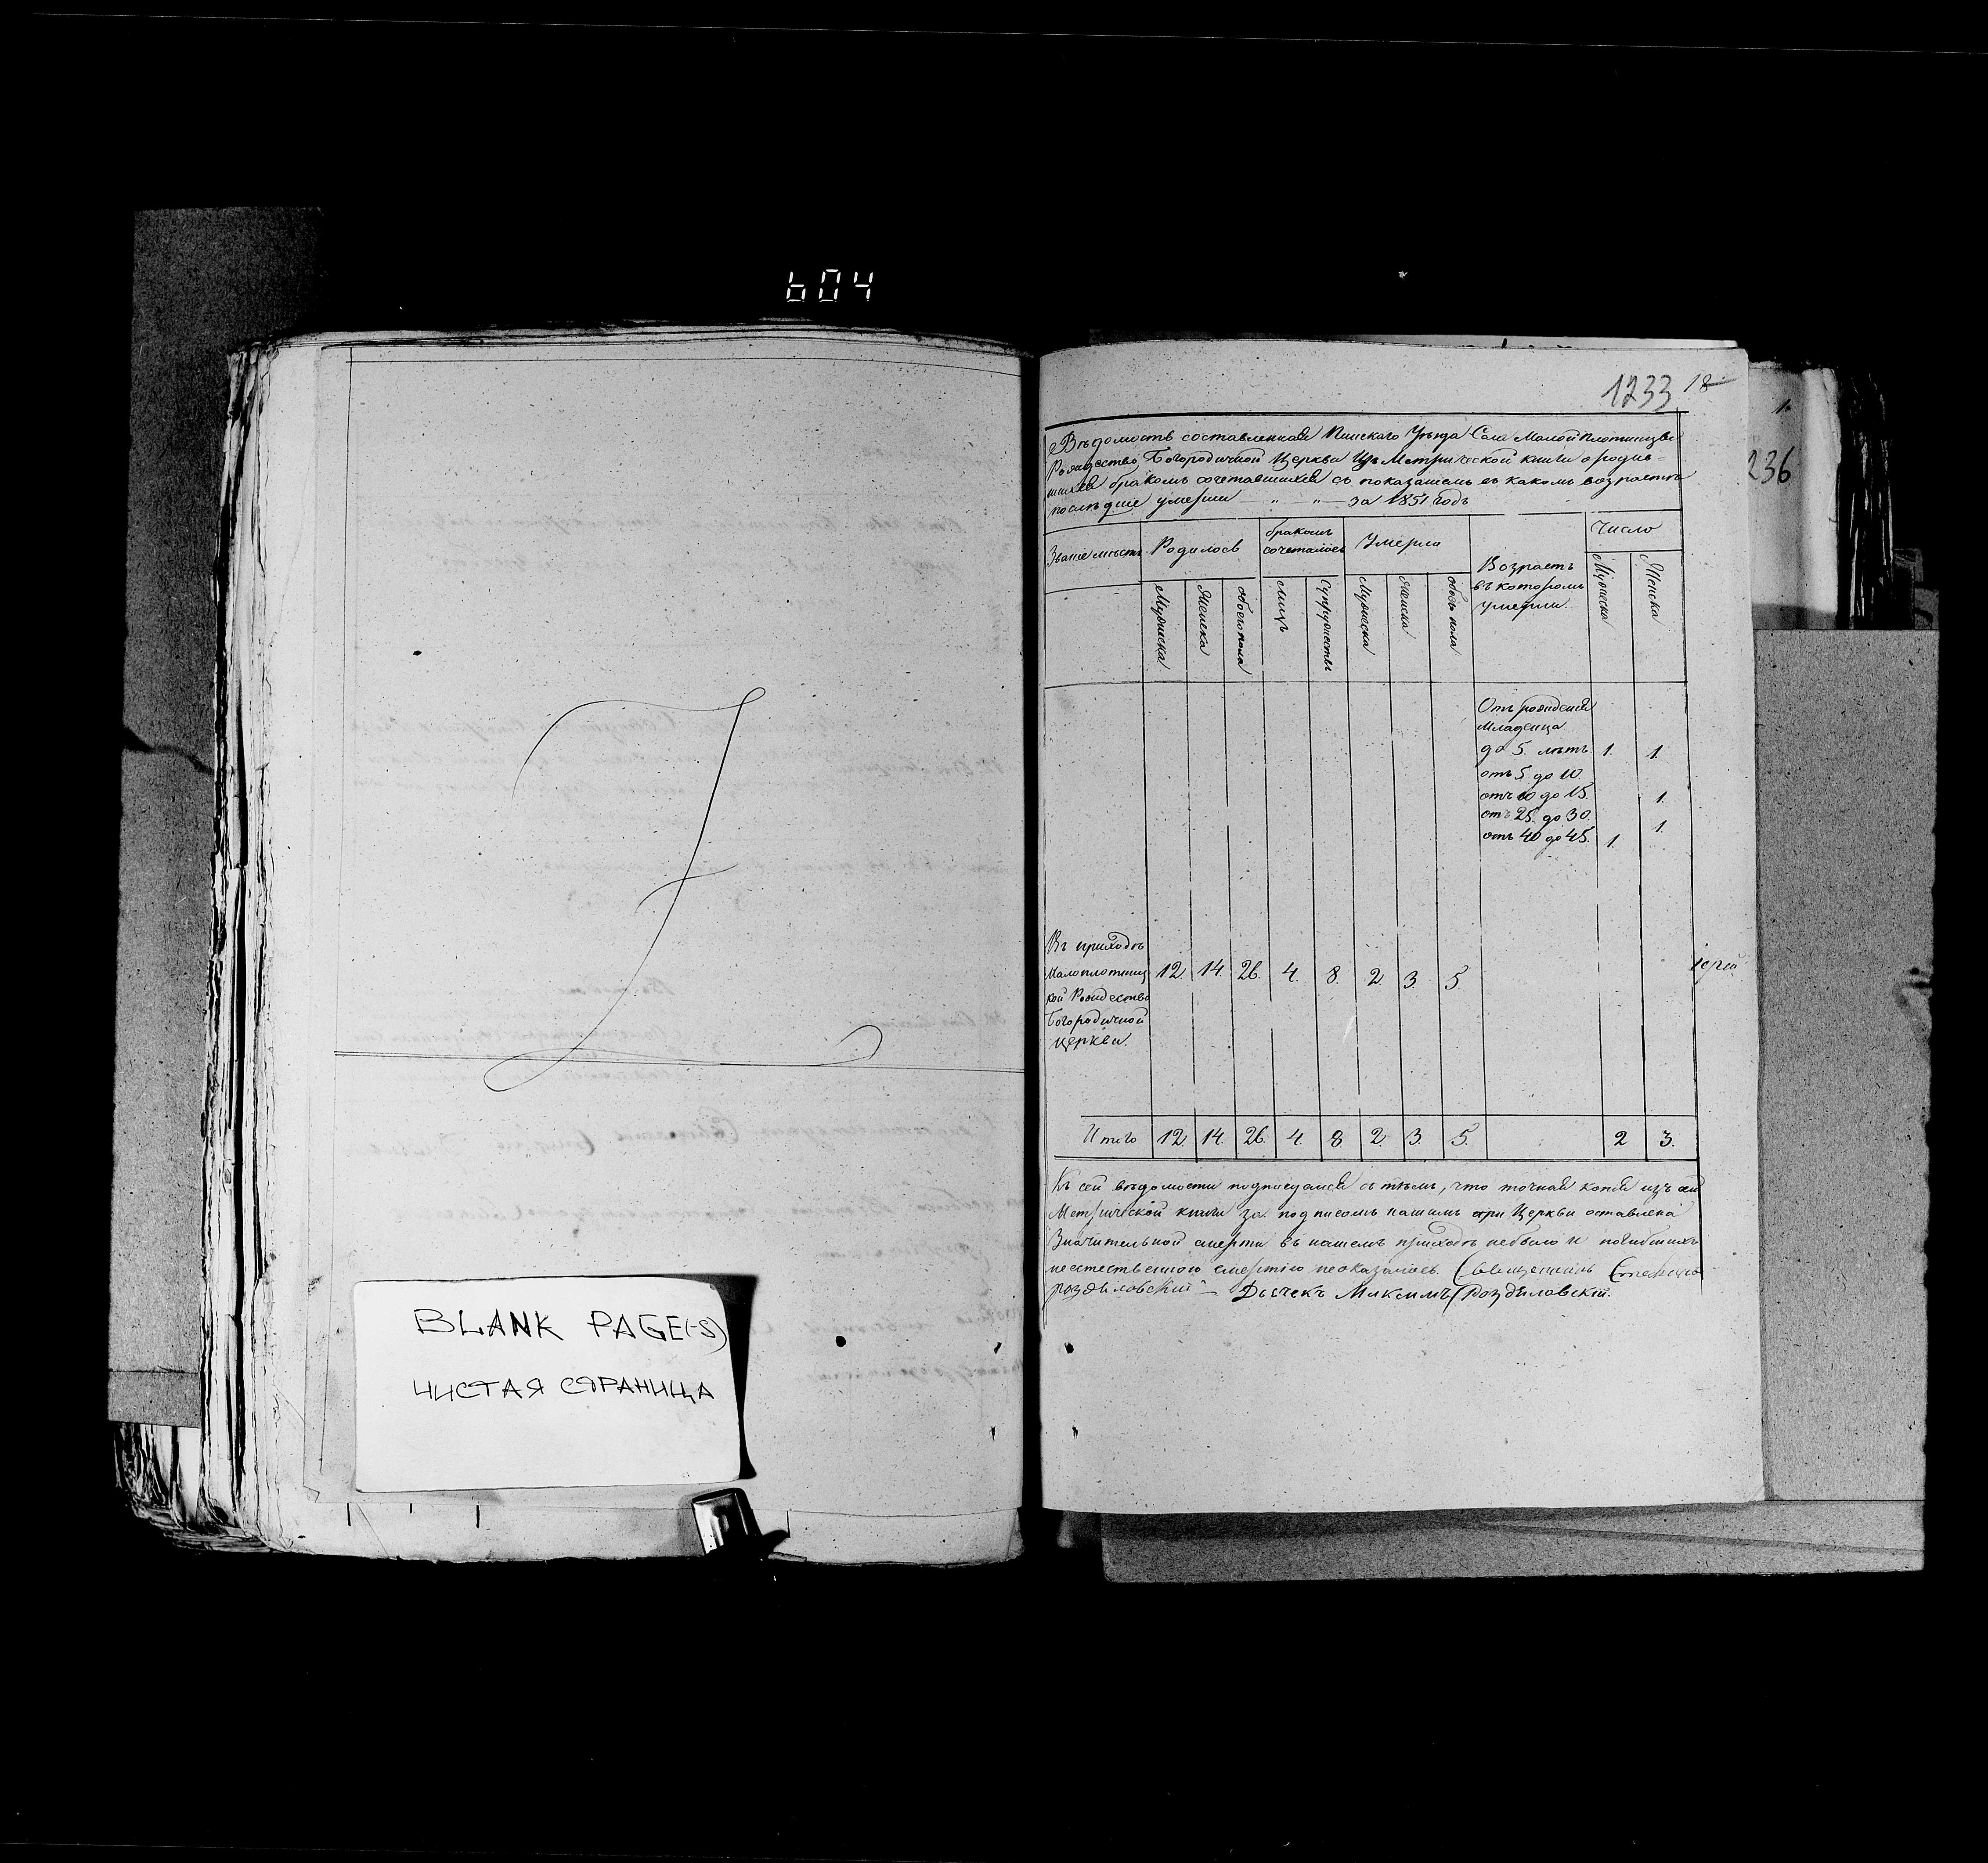 604
BLANK PAGE(-S)
ЧИСТАЯ СТРАНИЦА
1233 18
236
Вѣдомость составленная Пинскаго Уѣзда Села Малой Плотницы
Рождество Богородичной Церкви Изъ Метрической книги о родив-
шихся бракомъ сочетавшихся съ показаніемъ въ какомъ возрастѣ
послѣдніе умерли — „ — „ — за 1851 Годъ
Званіе мѣстъ Родилось бракомъ сочеталось Умерло Возрастъ въ которомъ умерли. Число
Мужеска Женска обоего пола лицъ Супружествъ Мужеска женска обоего пола Мужеска Женска
Отъ рожденія
Младенца
до 5. лѣтъ 1. 1.
отъ 5 до 10.
отъ 10 до 15. 1.
отъ 25. до 30. 1.
отъ 40 до 45. 1.
Въ приходѣ
Малоплотниц
кой Рождество
Богородичной
церкви.
12. 14. 26. 4. 8. 2. 3. 5.
іерей
Итого 12. 14. 26. 4. 8 2. 3. 5. 2 3.
Къ сей вѣдомости подписуемся съ тѣмъ, что точная копія изъ сей
Метрической книги за подписомъ нашимъ при Церкви оставлена
Значительной смерти въ нашемъ приходѣ небыло и погибшихъ
неестественною смертію неоказалось. Священникъ
Раздѣловскій — Дьячекъ Максимъ Роздѣловскій.